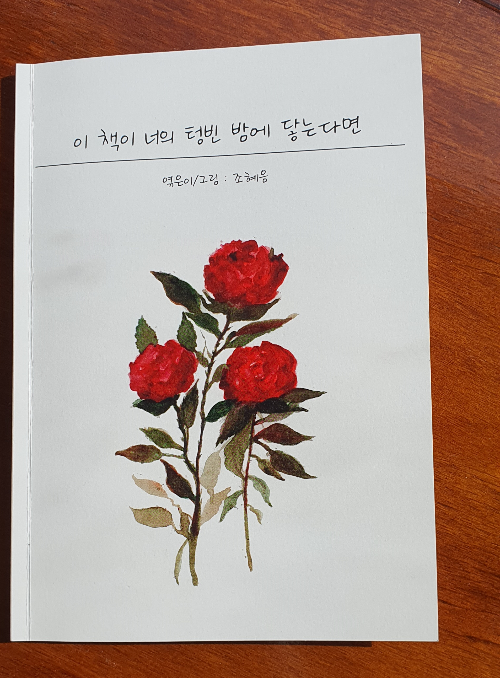 이 책이 너의 텅빈 밤에 닿는다면
엮은이/그림 : 조혜음